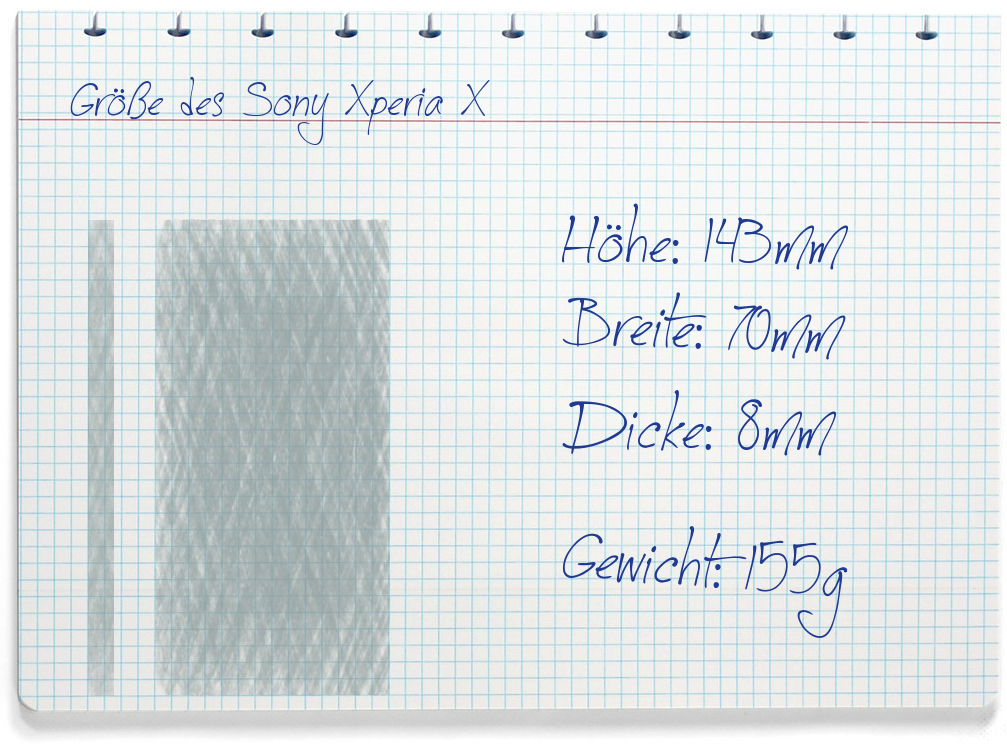 Größe des Sony Xperia X
Höhe: 143mm
Breite: 70mm
Dicke: 8mm
Gewicht: 155g